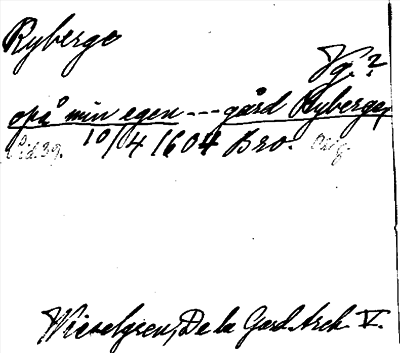 Ryberge
Vg.?
opå min egen --- gård Ryberga,
Sid.39. 10/4 1604 Bro. Orig.
Wieselgren, De la Gard. Arch. V.